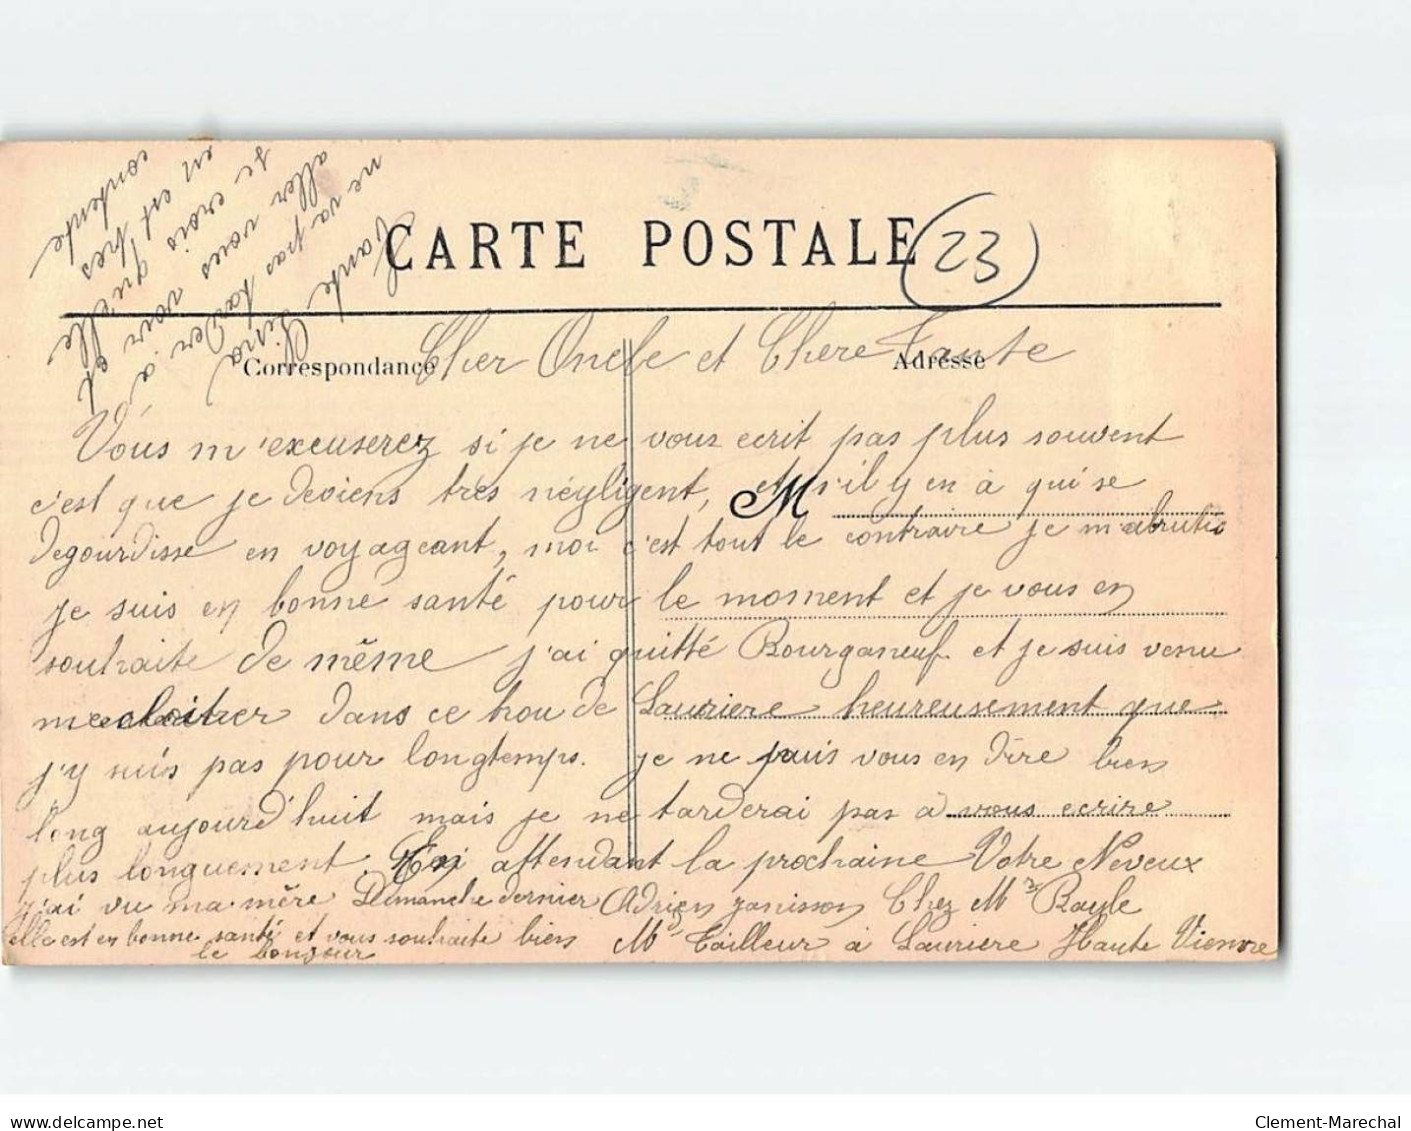 CARTE POSTALE
23
Correspondance
Adresse
M
Cher Oncle et Chere Tante
Vous m'excuserez si je ne vous ecrit pas plus souvent
c'est que je deviens tres négligent, et s'il y en à qui se
degourdisse en voyageant, moi c'est tout le contraire je m'abrutie
je suis en bonne santé pour le moment et je vous en
souhaite de même j'ai quitté Bourganeuf et je suis venu
me cloitrer dans ce trou de Lauriere heureusement que
j'y suis pas pour longtemps. je ne puis vous en dire bien
long aujourd'huit mais je ne tarderai pas a vous ecrire
plus longuement. En attendant la prochaine Votre Neveux
j'ai vu ma mère Dimanche dernier Adrien Janisson Chez Mr Bayle
elle est en bonne santé et vous souhaite bien Md Tailleur à Lauriere Haute Vienne
le bonjour
Tante Lina
ne va pas tarder à
aller vous voir et
je crois qu'elle
en est tres
contente
Clement-Marechal
www.delcampe.net